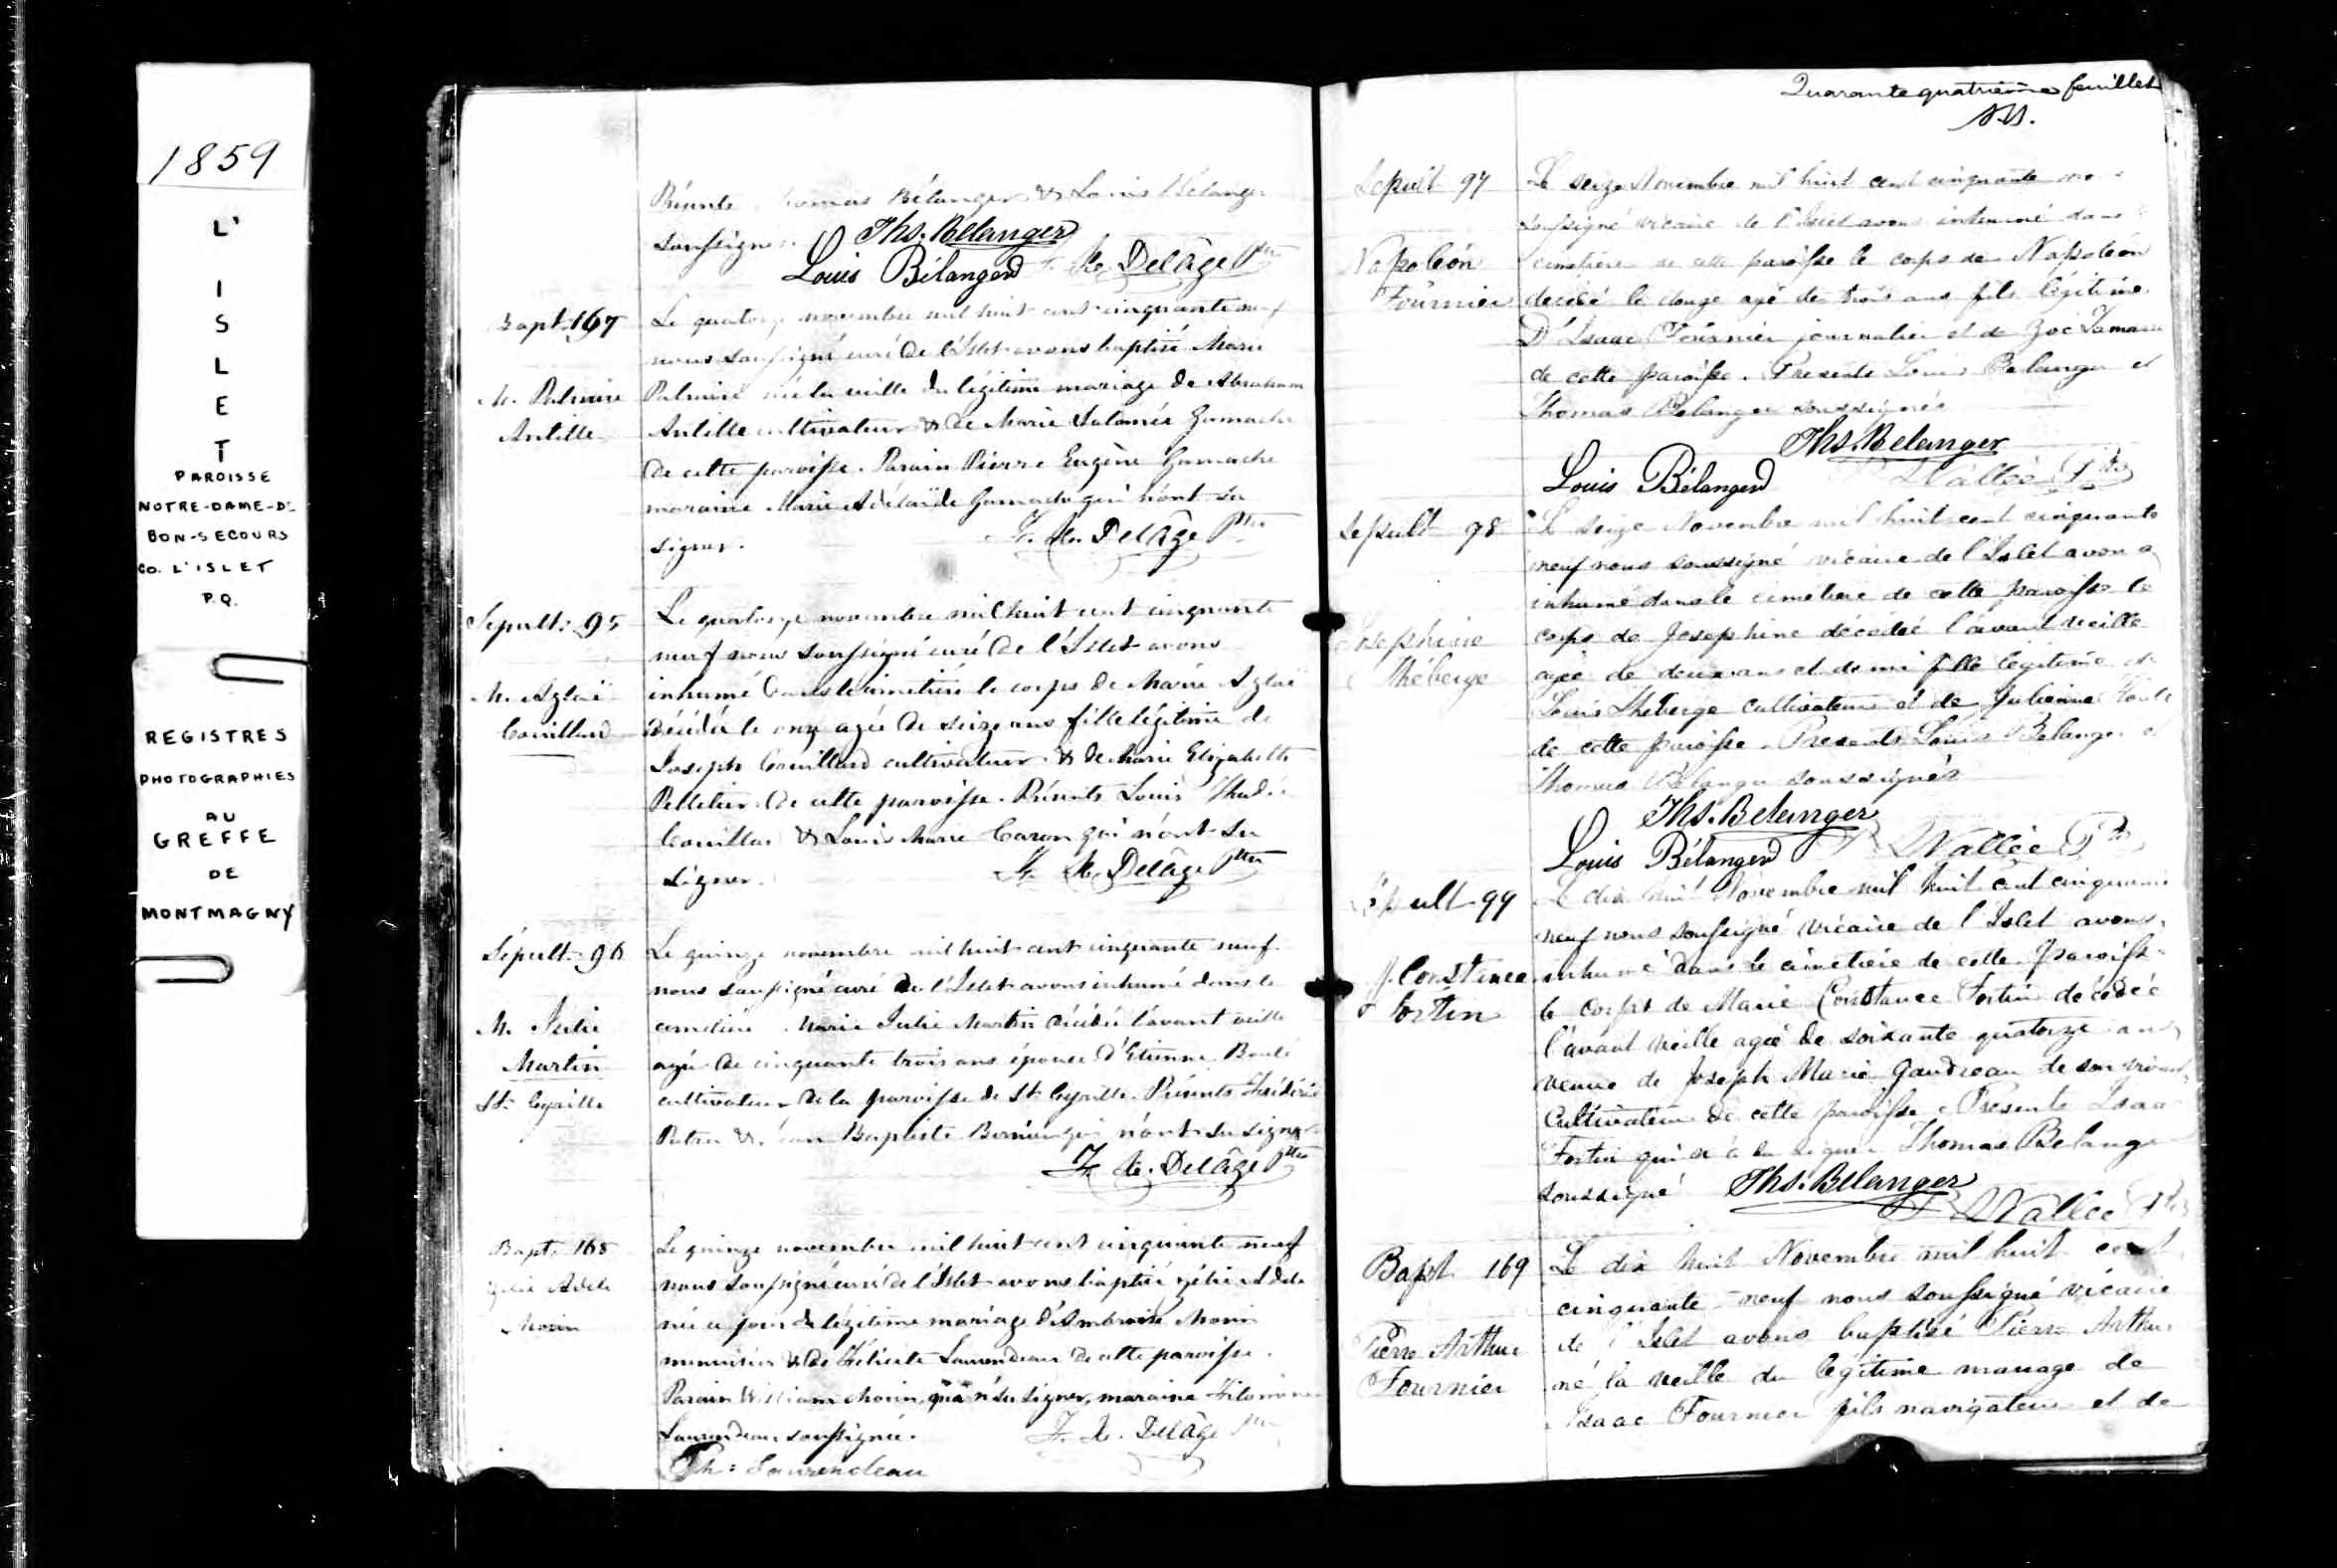 1859
L'
I
S
L
E
T
PAROISSE
NOTRE-DAME-DE
BON-SECOURS
CO. L'ISLET
P.Q.
REGISTRES
PHOTOGRAPHIES
AU
GREFFE
DE
MONTMAGNY
Présents Thomas Bélanger & Louis Bélanger
soussignés. Ths. Bélanger
Louis Bélanger F. X. Delâge Ptre
Bapt. 167
M. Palmire
Antille
Le quatorze novembre mil huit cent cinquante neuf
nous soussigné curé de l'Islet avons baptisé Marie
Palmire née la veille du légitime mariage de Abraham
Antille cultivateur & de Marie Salomée Gamache
de cette paroisse. Parain Pierre Eugène Gamache
maraine Marie Adélaïde Gamache qui n'ont su
signer. F. X. Delâge Ptre
Sépult. 95
M. Aglaé
Couillard
Le quatorze novembre mil huit cent cinquante
neuf nous soussigné curé de l'Islet avons
inhumé dans le cimetière le corps de Marie Aglaé
décédée le onze agée de seize ans fille légitime de
Joseph Couillard cultivateur & de Marie Elizabeth
Pelletier de cette paroisse. Présents Louis
Couillard & Louis Marie Caron qui n'ont su
signer. F. X. Delâge Ptre
Sépult. 96
M. Julie
Martin
St. Cyrille
Le quinze novembre mil huit cent cinquante neuf
nous soussigné curé de l'Islet avons inhumé dans le
cimetière Marie Julie Martin décédée l'avant veille
agée de cinquante trois ans épouse d'Etienne
cultivateur de la paroisse de St. Cyrille. Présents Frédéric
& Jean Baptiste qui n'ont su signer
F. X. Delâge Ptre
Bapt. 168
Zélie Adèle
Morin
Le quinze novembre mil huit cent cinquante neuf
nous soussigné curé de l'Islet avons baptisé Zélie Adèle
née ce jour du légitime mariage d'Ambroise Morin
menuisier & de Félicité Laurendeau de cette paroisse.
Parain William Morin, qui n'a su signer, maraine Filomène
Laurendeau soussignée. F. X. Delâge Ptre
Ph: Laurendeau
Quarante quatrième feuillet
Sepult 97
Napoléon
Fournier
Le seize Novembre mil huit cent cinquante
soussigné vicaire de l'Islet avons inhumé dans
cimetière de cette paroisse le corps de Napoléon
décédé le douze agé de trois ans fils légitime
D'Isaac Fournier journalier et de Zoé
de cette paroisse. Presents Louis Belanger et
Thomas Belanger soussignés
Ths. Belanger
Louis Bélanger Vallée Ptre
Sepult 98
Josephine
Théberge
Le seize Novembre mil huit cent cinquante
neuf nous soussigné vicaire de l'Islet avons
inhumé dans le cimetière de cette paroisse le
corps de Josephine décédée l'avant veille
agée de deux ans et demi fille legitime de
Louis Theberge cultivateur et de Julienne
de cette paroisse. Presents Louis Belanger et
Thomas Bélanger soussignés
Ths. Belanger
Louis Bélanger Vallée Ptre
Sépult 99
M. Constance
Fortin
Le dix huit Novembre mil huit cent cinquante
neuf nous soussigné vicaire de l'Islet avons
inhumé dans le cimetière de cette paroisse
le corps de Marie Constance Fortin décédée
l'avant veille agée de soixante quatorze ans
veuve de Joseph Marie Gaudreau de son vivant
Cultivateur de cette paroisse. Presents Isaac
Fortin qui n'a su signer Thomas Belanger
soussigné Ths. Belanger
Vallée Ptre
Bapt 169
Pierre Arthur
Fournier
Le dix huit Novembre mil huit cent
cinquante-neuf nous soussigné vicaire
de l'Islet avons baptisé Pierre Arthur
né la veille du légitime mariage de
Isaac Fournier fils navigateur et de